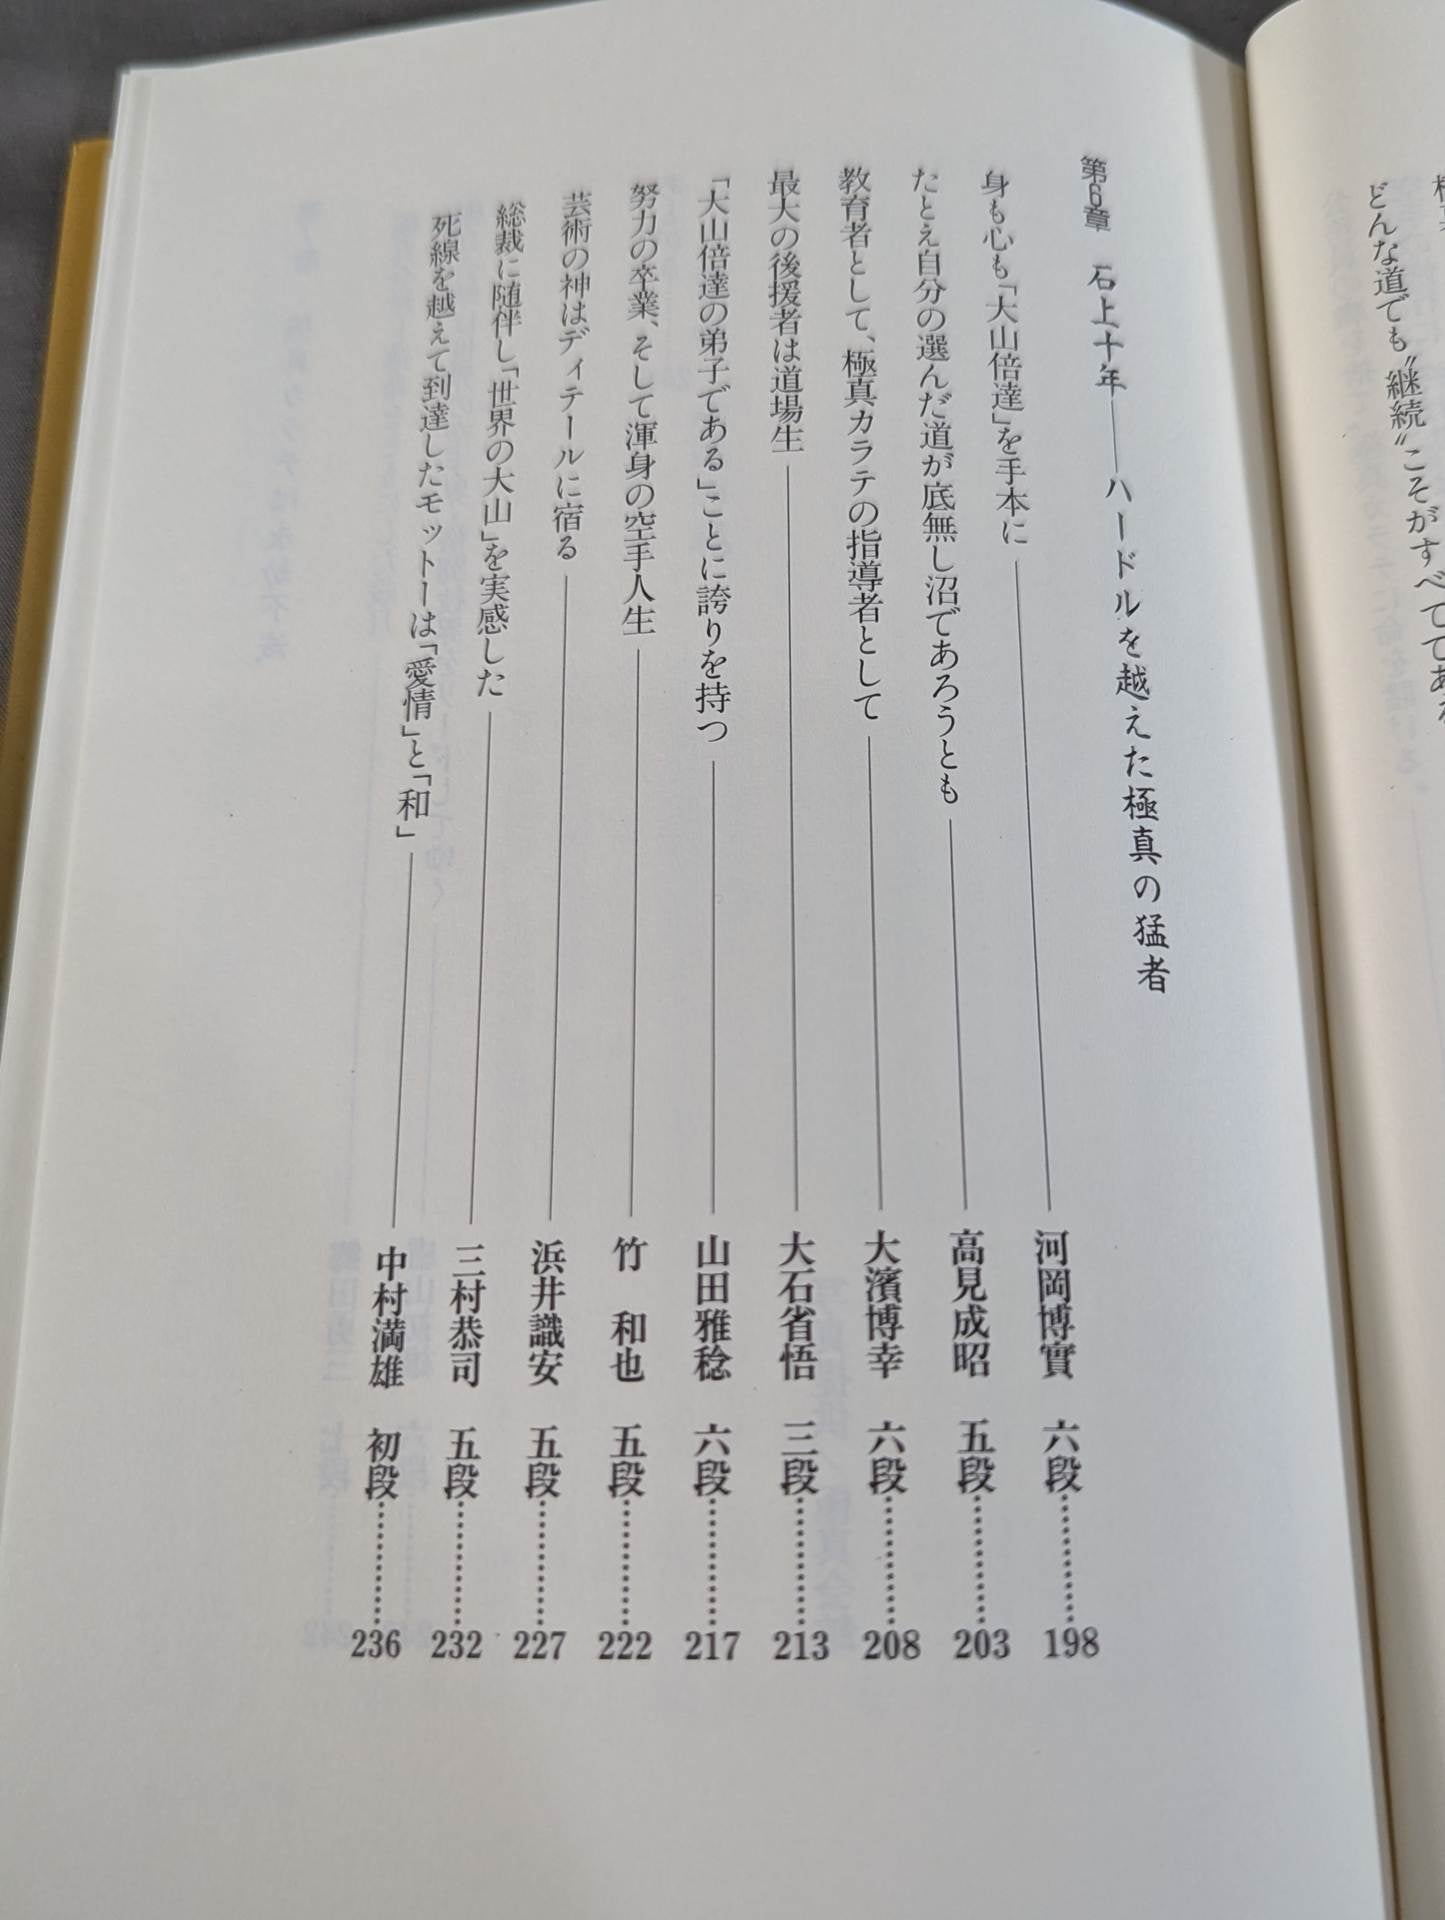 どんな道でも〝継続〟こそがすべてであ
第6章　石上十年――ハードルを越えた極真の猛者
身も心も「大山倍達」を手本に――河岡博實　六段……198
たとえ自分の選んだ道が底無し沼であろうとも――高見成昭　五段……203
教育者として、極真カラテの指導者として――大濱博幸　六段……208
最大の後援者は道場生――大石省悟　三段……213
「大山倍達の弟子である」ことに誇りを持つ――山田雅稔　六段……217
努力の卒業、そして渾身の空手人生――竹　和也　五段……222
芸術の神はディテールに宿る――浜井識安　五段……227
総裁に随伴し「世界の大山」を実感した――三村恭司　五段……232
死線を越えて到達したモットーは「愛情」と「和」――中村満雄　初段……236